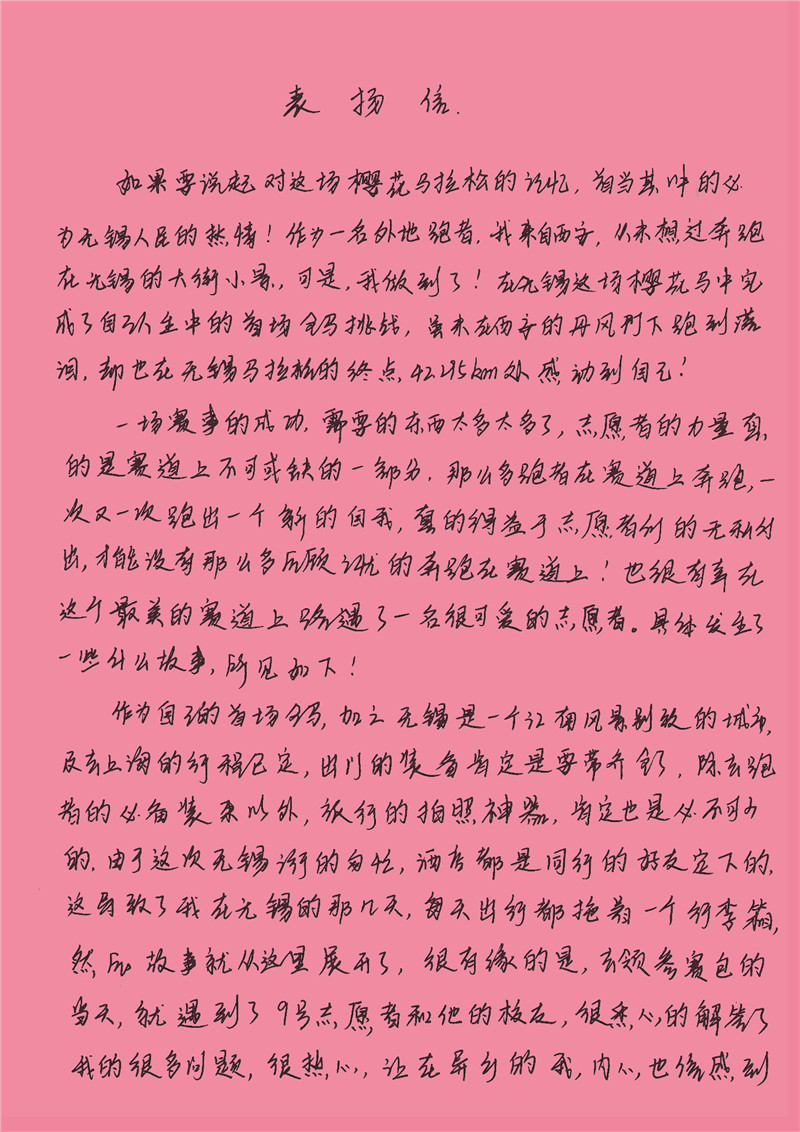 表扬信.
如果要说起对这场樱花马拉松的记忆,首当其冲的必
为无锡人民的热情!作为一名外地跑者,我来自西安,从未想过奔跑
在无锡的大街小景,可是,我做到了!在无锡这场樱花马中完
成了自己人生中的首场全马挑战,虽未在西安的丹凤门下跑到落
泪,却也在无锡马拉松的终点,42.195km处感动到自己!
一场赛事的成功,需要的东西太多太多了,志愿者的力量真
的是赛道上不可或缺的一部分.那么多跑者在赛道上奔跑,一
次又一次跑出一个新的自我,真的得益于志愿者们的无私付
出,才能没有那么多后顾之忧的奔跑在赛道上!也很有幸在
这个最美的赛道上路遇了一名很可爱的志愿者。具体发生了
一些什么故事,所见如下!
作为自己的首场全马,加之无锡是一个江南风景别致的城市,
及去上海的行程已定,出门的装备肯定是要带齐全,除去跑
者的必备装束以外,旅行的拍照神器,肯定也是必不可少
的.由于这次无锡行的匆忙,酒店都是同行的好友定下的,
这导致了我在无锡的那几天,每天出行都拖着一个行李箱,
然后故事就从这里展开了,很有缘的是,去领参赛包的
当天,就遇到了9号志愿者和他的校友,很热心的解答了
我的很多问题,很热心,让在异乡的我,内心也倍感到